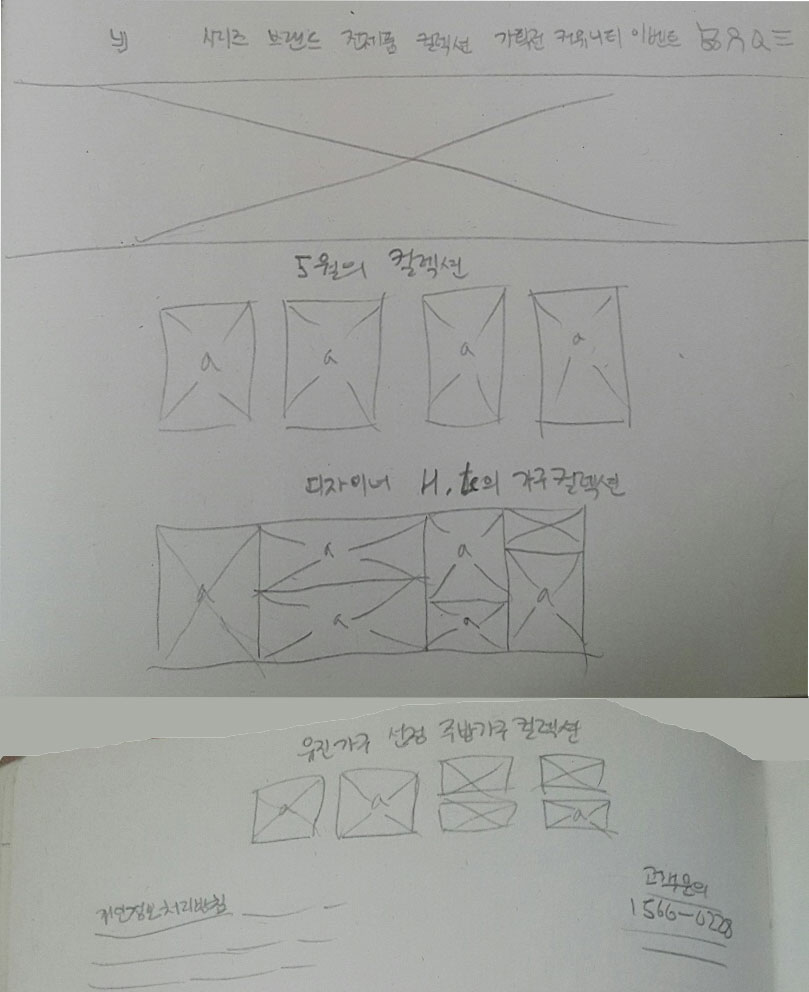 시리즈 브랜드 전제품 컬렉션 기획전 커뮤니티 이벤트
5월의 컬렉션
a a a a
디자이너 H, 의 가구컬렉션
a a a
a a a a
유진가구 선정 주방가구 컬렉션
a a
a
고객문의
개인정보처리방침
1566-0228